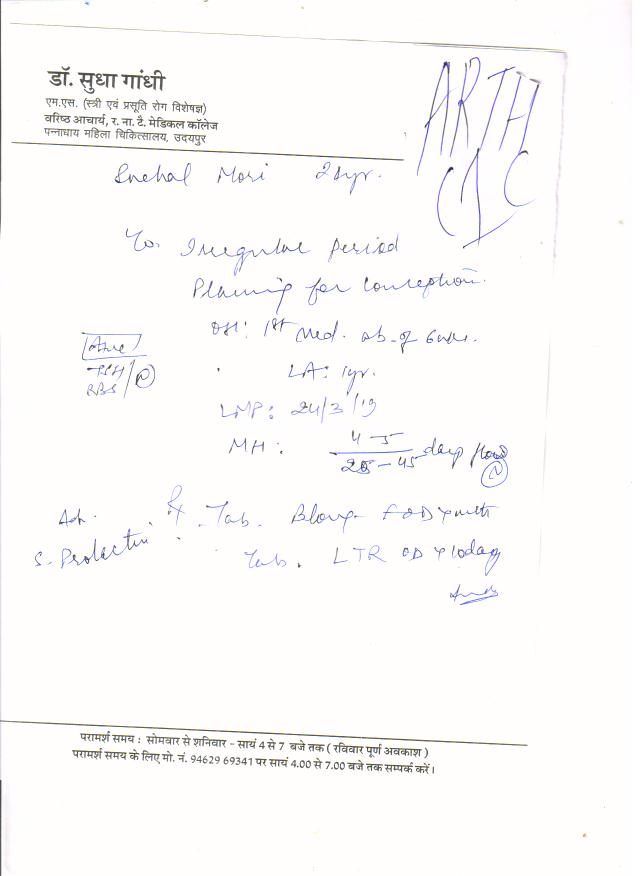 डॉ. सुधा गांधी
एम.एस. (स्त्री एवं प्रसूति रोग विशेषज्ञ)
वरिष्ठ आचार्य, र. ना. टै. मेडिकल कॉलेज
पन्नाधाय महिला चिकित्सालय, उदयपुर
ARTH
Snehal Mori
Irregular Period
Planning for Conception.
OH: 1st Med. ab. of
LA: 1yr.
TSH/ N
RBS
LMP: 24/3/19
MH: 4-5
28-45 days flow
N
Adv.
S. Prolactin
Rx . Tab. OD x
Tab. LTR OD x 10days
परामर्श समय : सोमवार से शनिवार - सायं 4 से 7 बजे तक ( रविवार पूर्ण अवकाश )
परामर्श समय के लिए मो. नं. 94629 69341 पर सायं 4.00 से 7.00 बजे तक सम्पर्क करें।